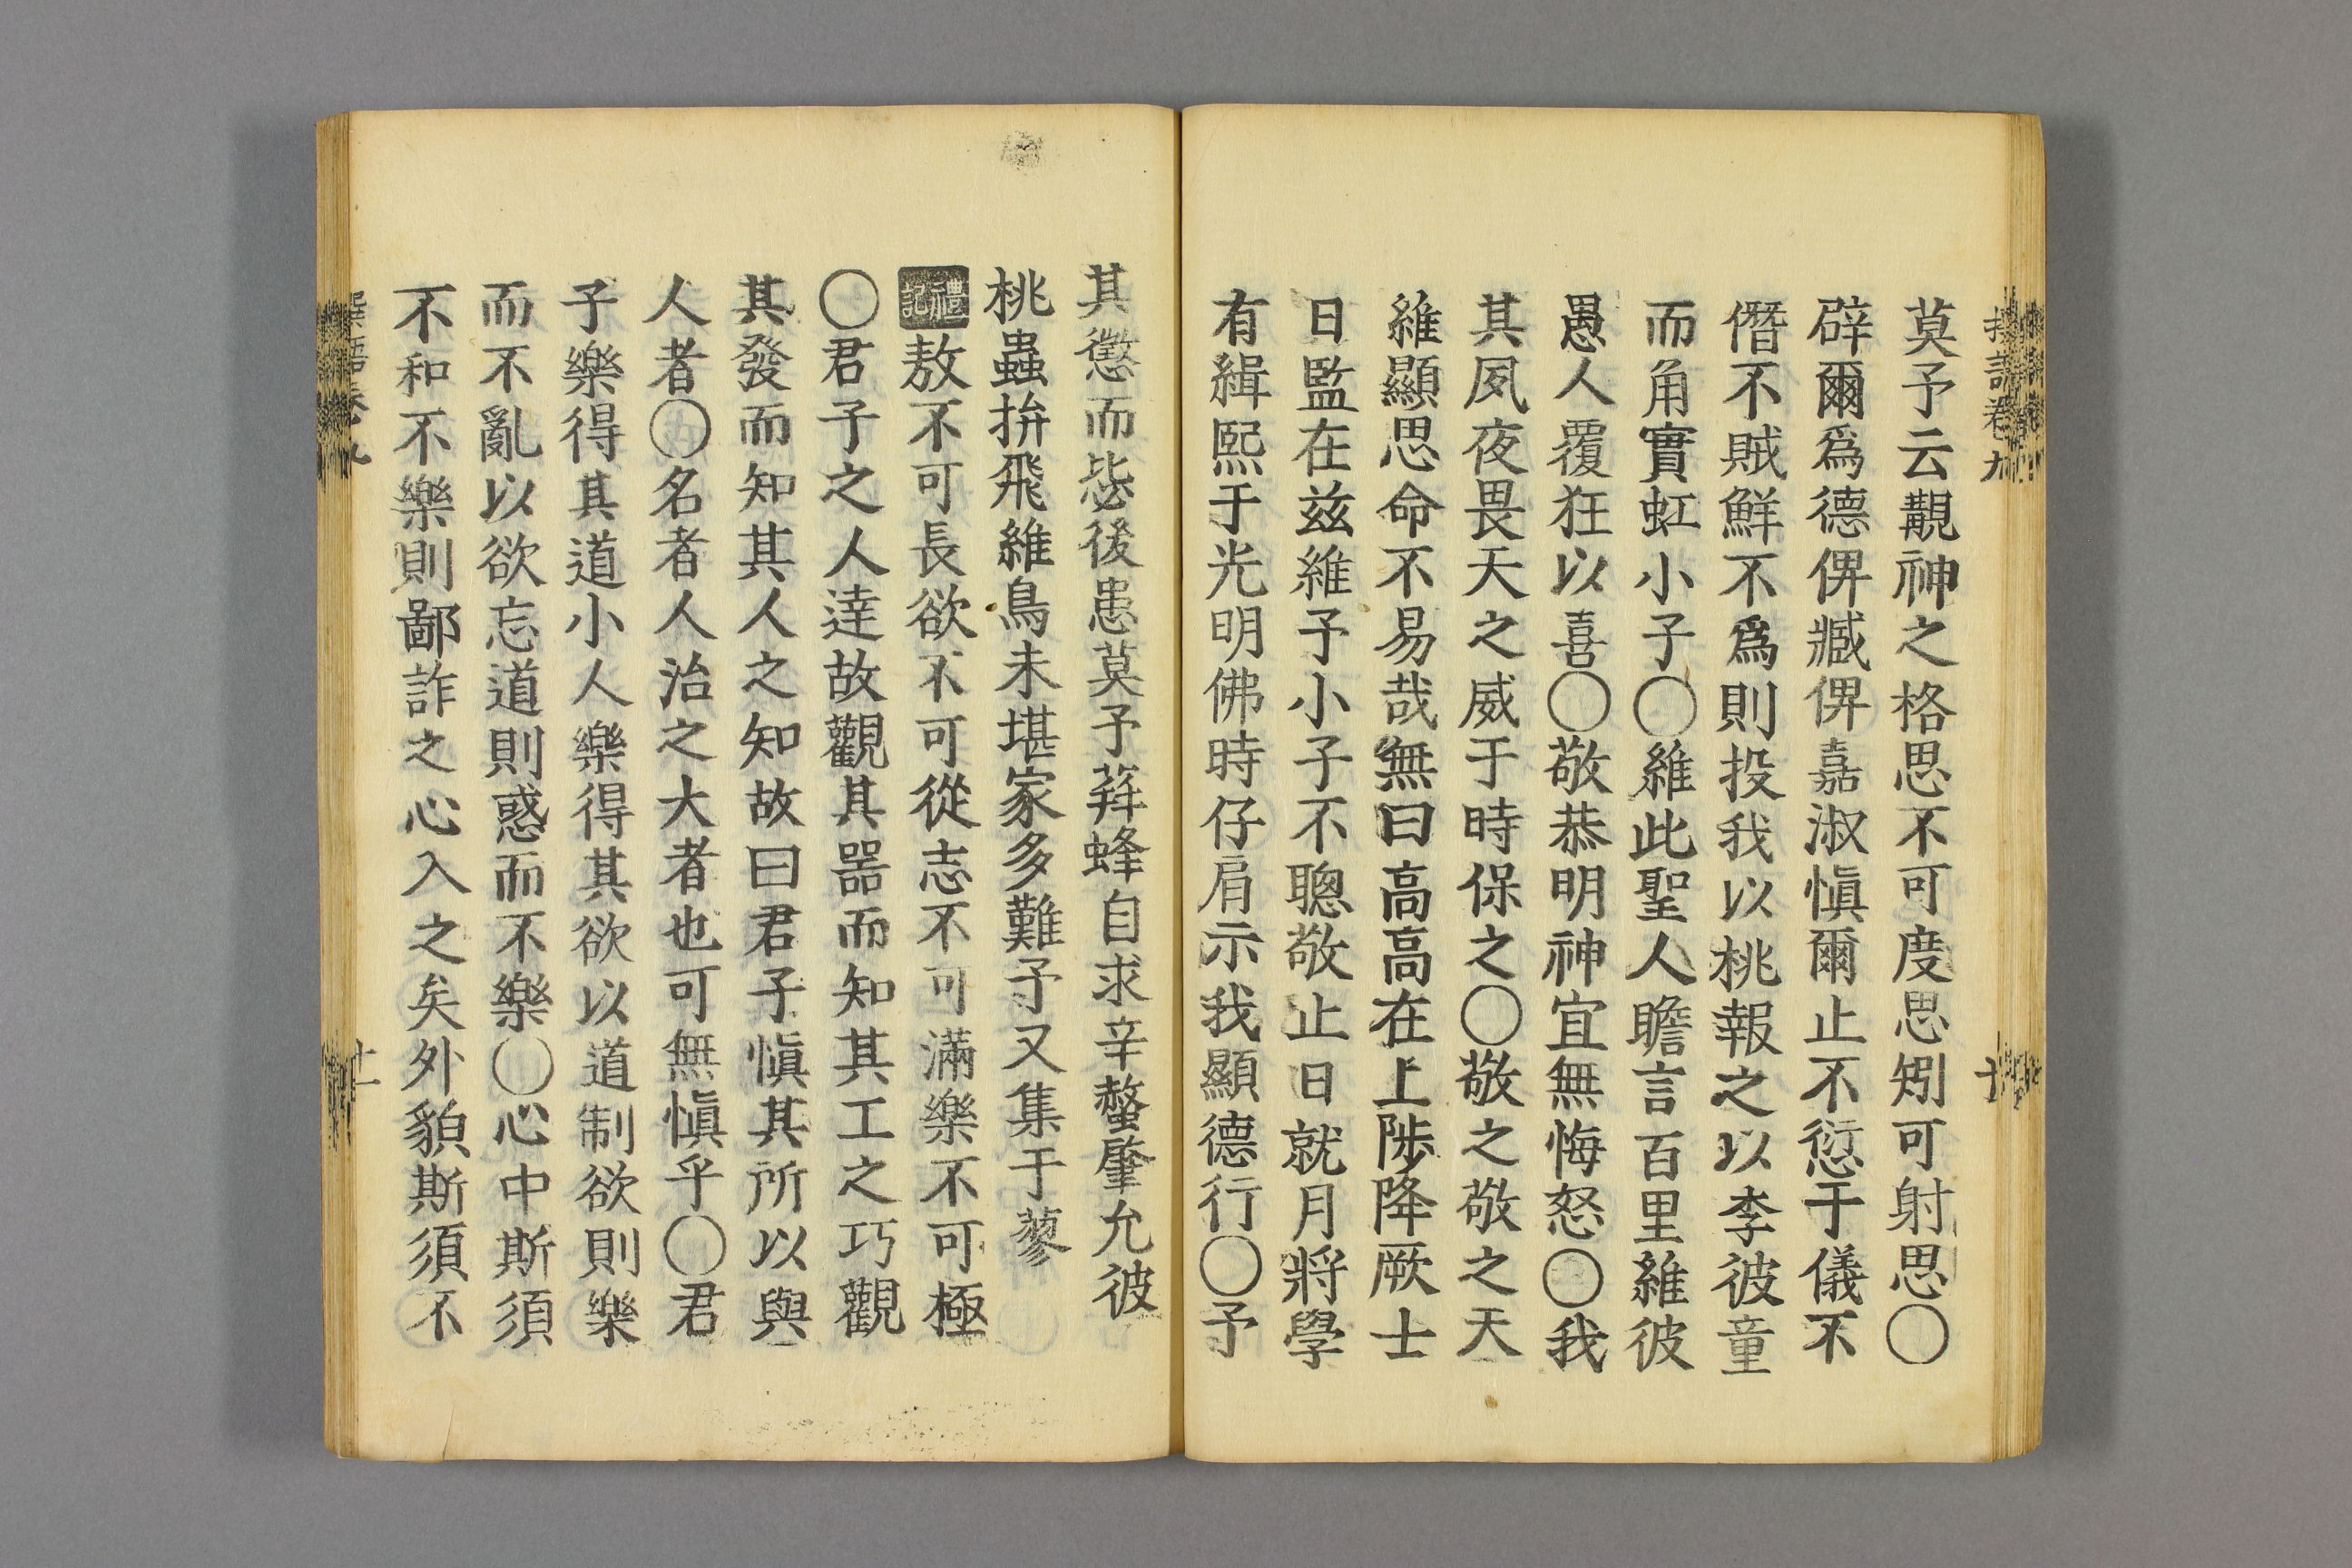 莫予云覯神之格思不可度思矧可射思〇
辟爾爲德俾臧俾嘉淑愼爾止不愆于儀不
僭不賊鮮不爲則投我以桃報之以李彼童
而角實虹小子〇維此聖人瞻言百里維彼
愚人覆狂以喜〇敬恭明神宜無悔怒〇我
其夙夜畏天之威于時保之〇敬之敬之天
維顯思命不易哉無曰高高在上陟降厥士
日監在玆維予小子不聰敬止日就月將學
有緝熙于光明佛時仔肩示我顯德行〇予
其懲而毖後患莫予荓蜂自求辛螫肇允彼
桃蟲拚飛維鳥未堪家多難予又集于蓼
禮記敖不可長欲不可從志不可滿樂不可極
〇君子之人達故觀其器而知其工之巧觀
其發而知其人之知故曰君子愼其所以與
人者〇名者人治之大者也可無愼乎〇君
子樂得其道小人樂得其欲以道制欲則樂
而不亂以欲忘道則惑而不樂〇心中斯須
不和不樂則鄙詐之心入之矣外貌斯須不
十一